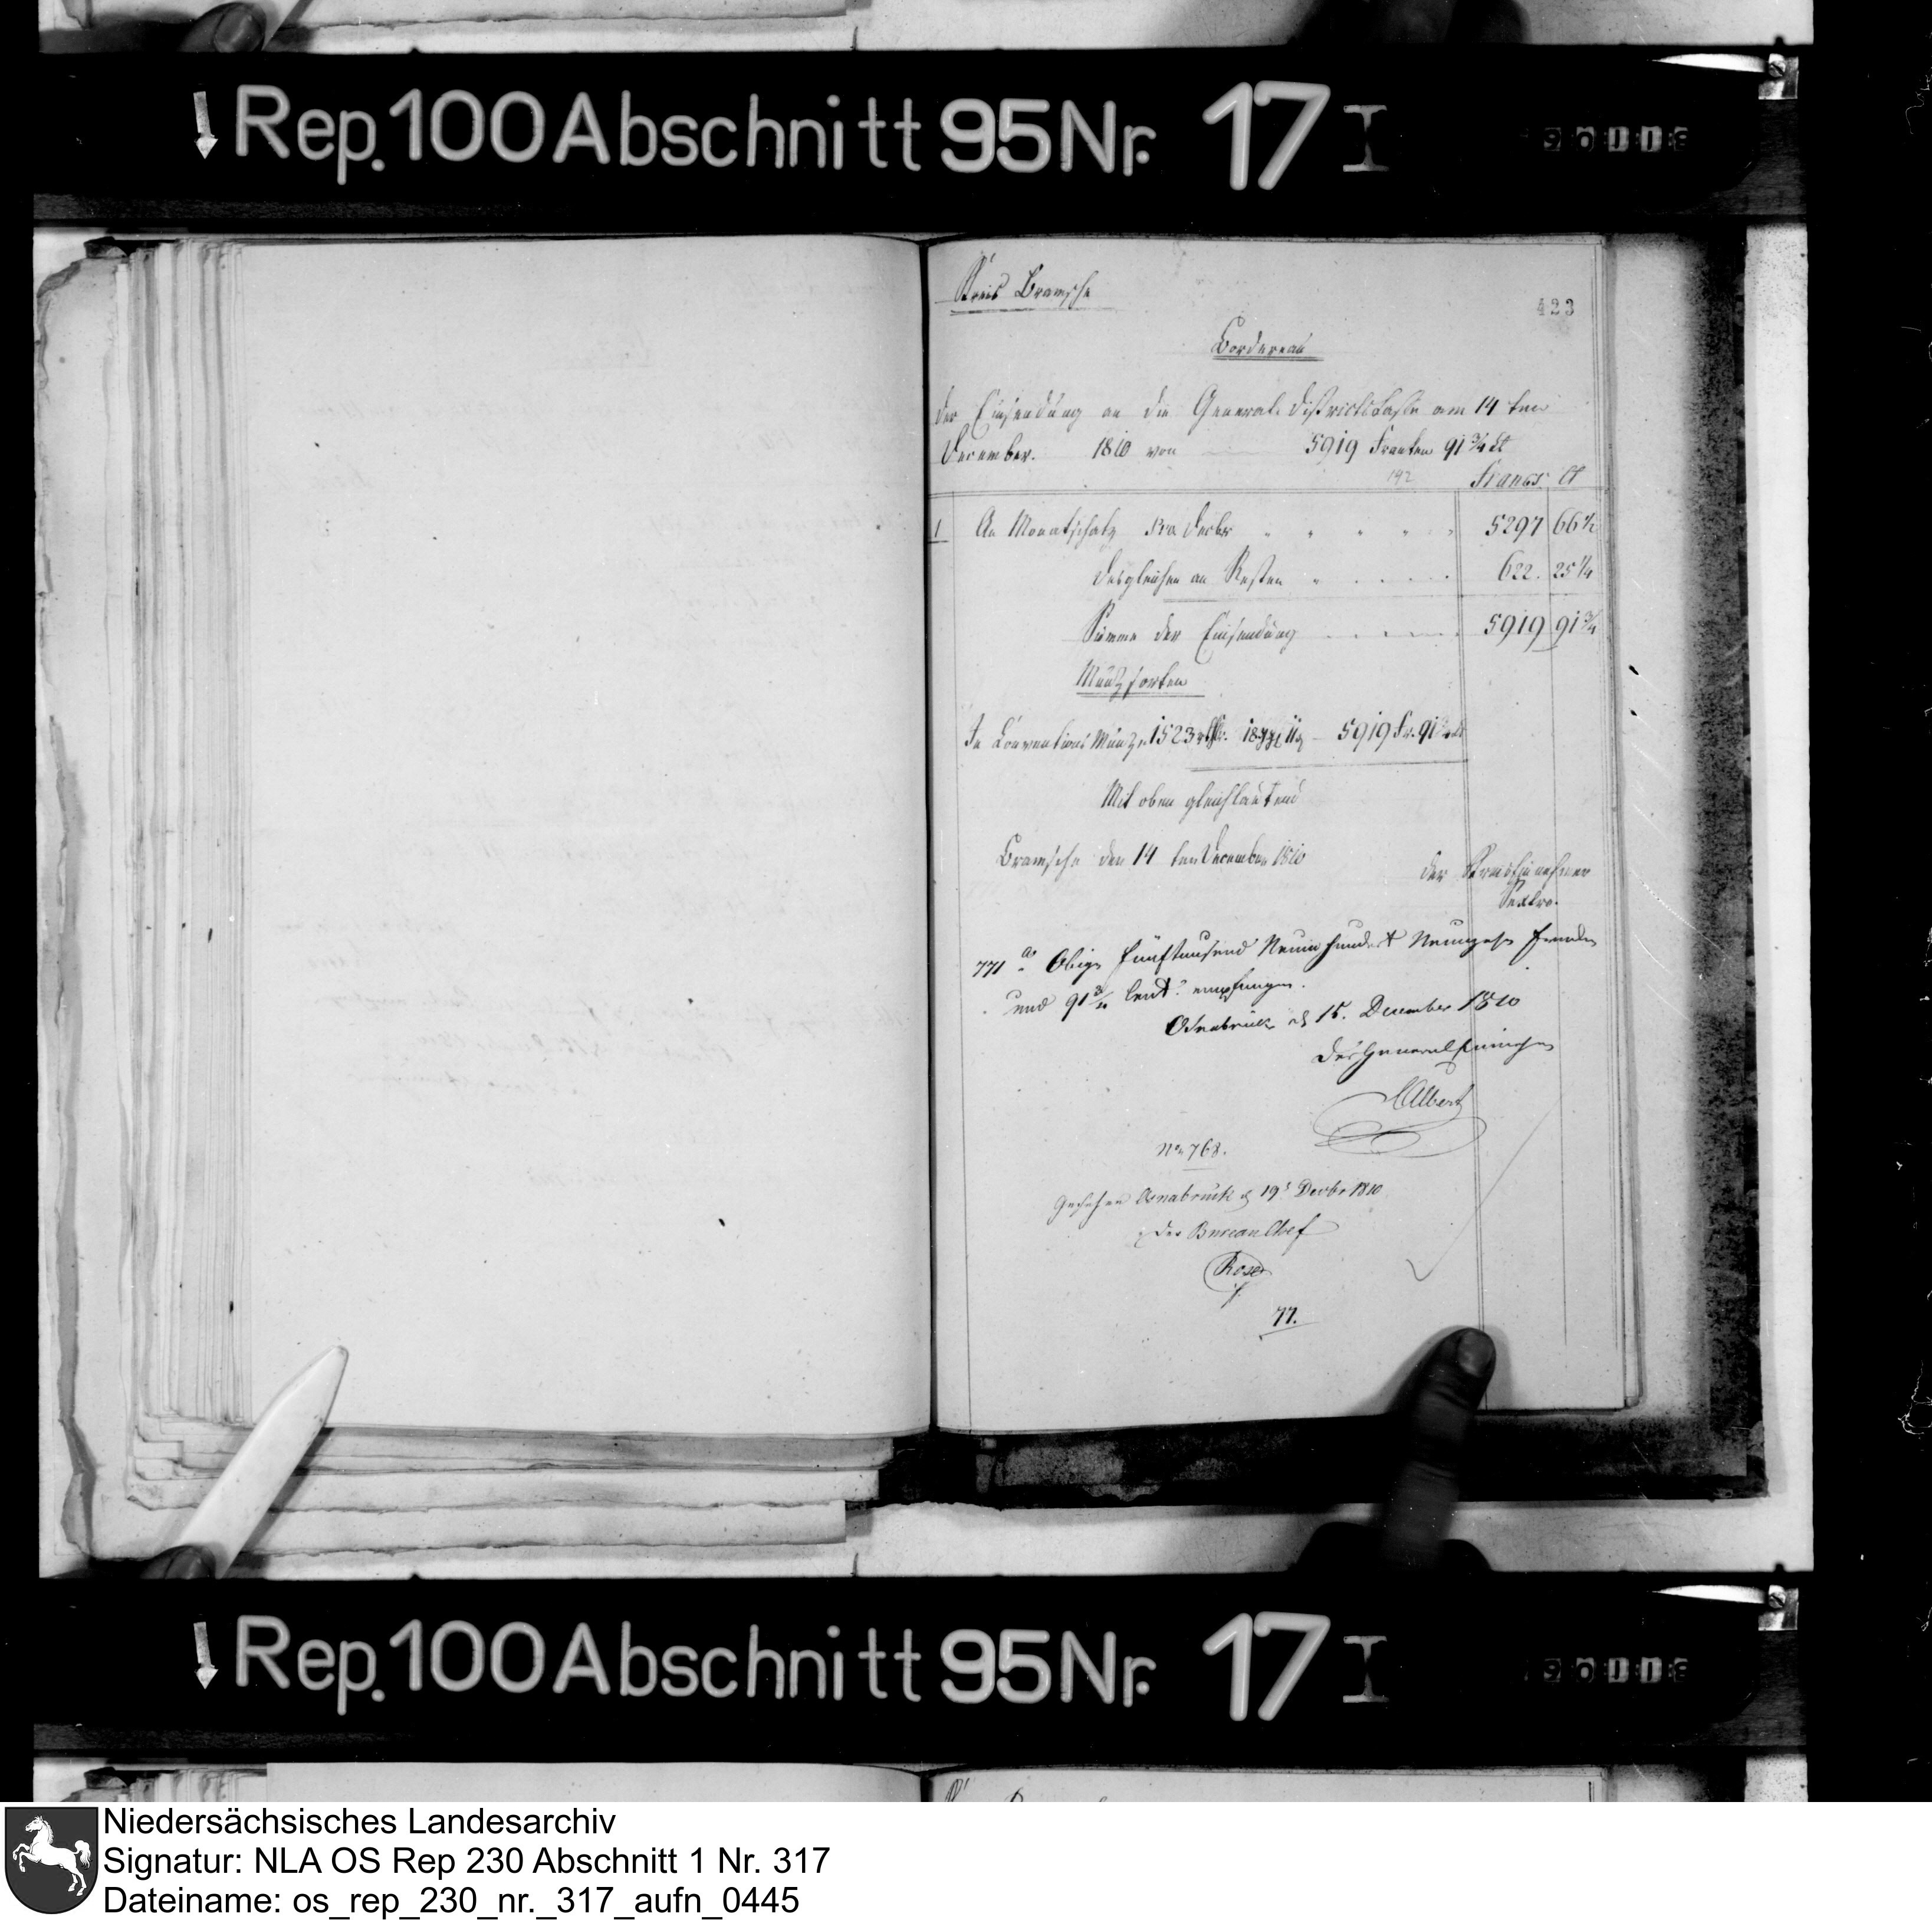 Rep. 100 Abschnitt 95 Nr. 17 I
Kreis Bramsche
423
Bordereau
der Einsendung an die General districtscasse am 14 ten
December. 1810 von 5919 Franken 91 3/4 Ct
192
Francs Ct
1 An Monatschatz pro Decbr 5297 66 1/2
desgleichen an Resten 622. 25 1/4
Summa der Einsendung 5919 91 3/4
Münzsorten
In Conventions Münze 1523 rthlr. 18 ggl 11 ₰ 5919 Fr. 91 3/4 Ct
Mit oben gleichlautend
Bramsche den 14 ten December 1810
der Kreis Einnehmer
Sextro.
771 a Obige fünftausend Neunhundert Neunzehn Franken
und 91 3/4 Cent. empfangen.
Osnabrück 15. December 1810
Der General Einnehmer
Albert
No 768.
Gesehen Osnabrück 19 Decbr 1810
Der Bureau Chef
Rose
77.
Rep. 100 Abschnitt 95 Nr. 17 I
Niedersächsisches Landesarchiv
Signatur: NLA OS Rep 230 Abschnitt 1 Nr. 317
Dateiname: os_rep_230_nr._317_aufn_0445